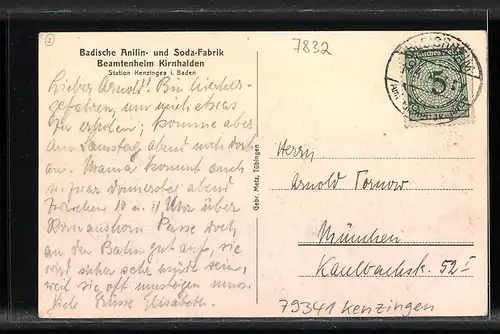 Badische Anilin- und Soda-Fabrik
Beamtenheim Kirnhalden
Station Kenzingen i. Baden
7832
Lieber Arnold! Bin hierher-
gefahren, um mich etwas
zu erholen; komme aber
am Samstag abend noch dort
an. Mama kommt auch
u. zwar Donnerstag abend
zwischen 10 u. 11 Uhr über
Romanshorn. Passe doch
an der Bahn gut auf, sie
wird sicher sehr müde sein,
weil sie oft umsteigen muss.
Viele Grüsse Elisabeth.
Gebr. Metz, Tübingen
5
Herrn
Arnold Tornow
München
Kaulbachstr. 52 I
79341 Kenzingen